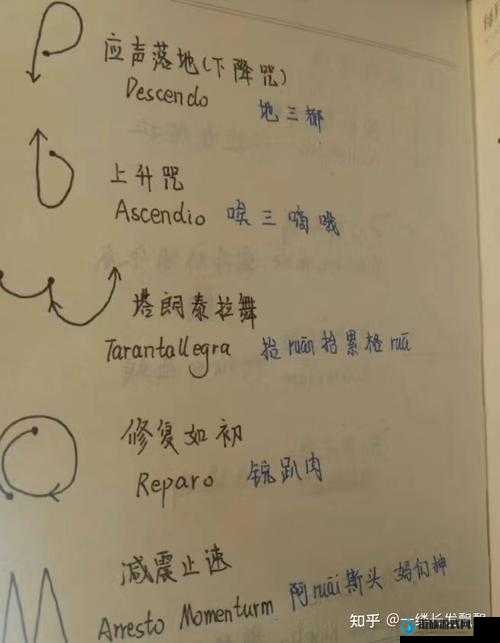 应声落地(下降咒)
Descendo 地三都
上升咒
Ascendio 唉三嘀哦
塔朗泰拉舞
Tarantallegra 抬ruān抬累格ruā
修复如初
Reparo 锐趴肉
减震止速
Arresto Momenturm 阿ruāi斯头
知乎 @一缕长发飘飘